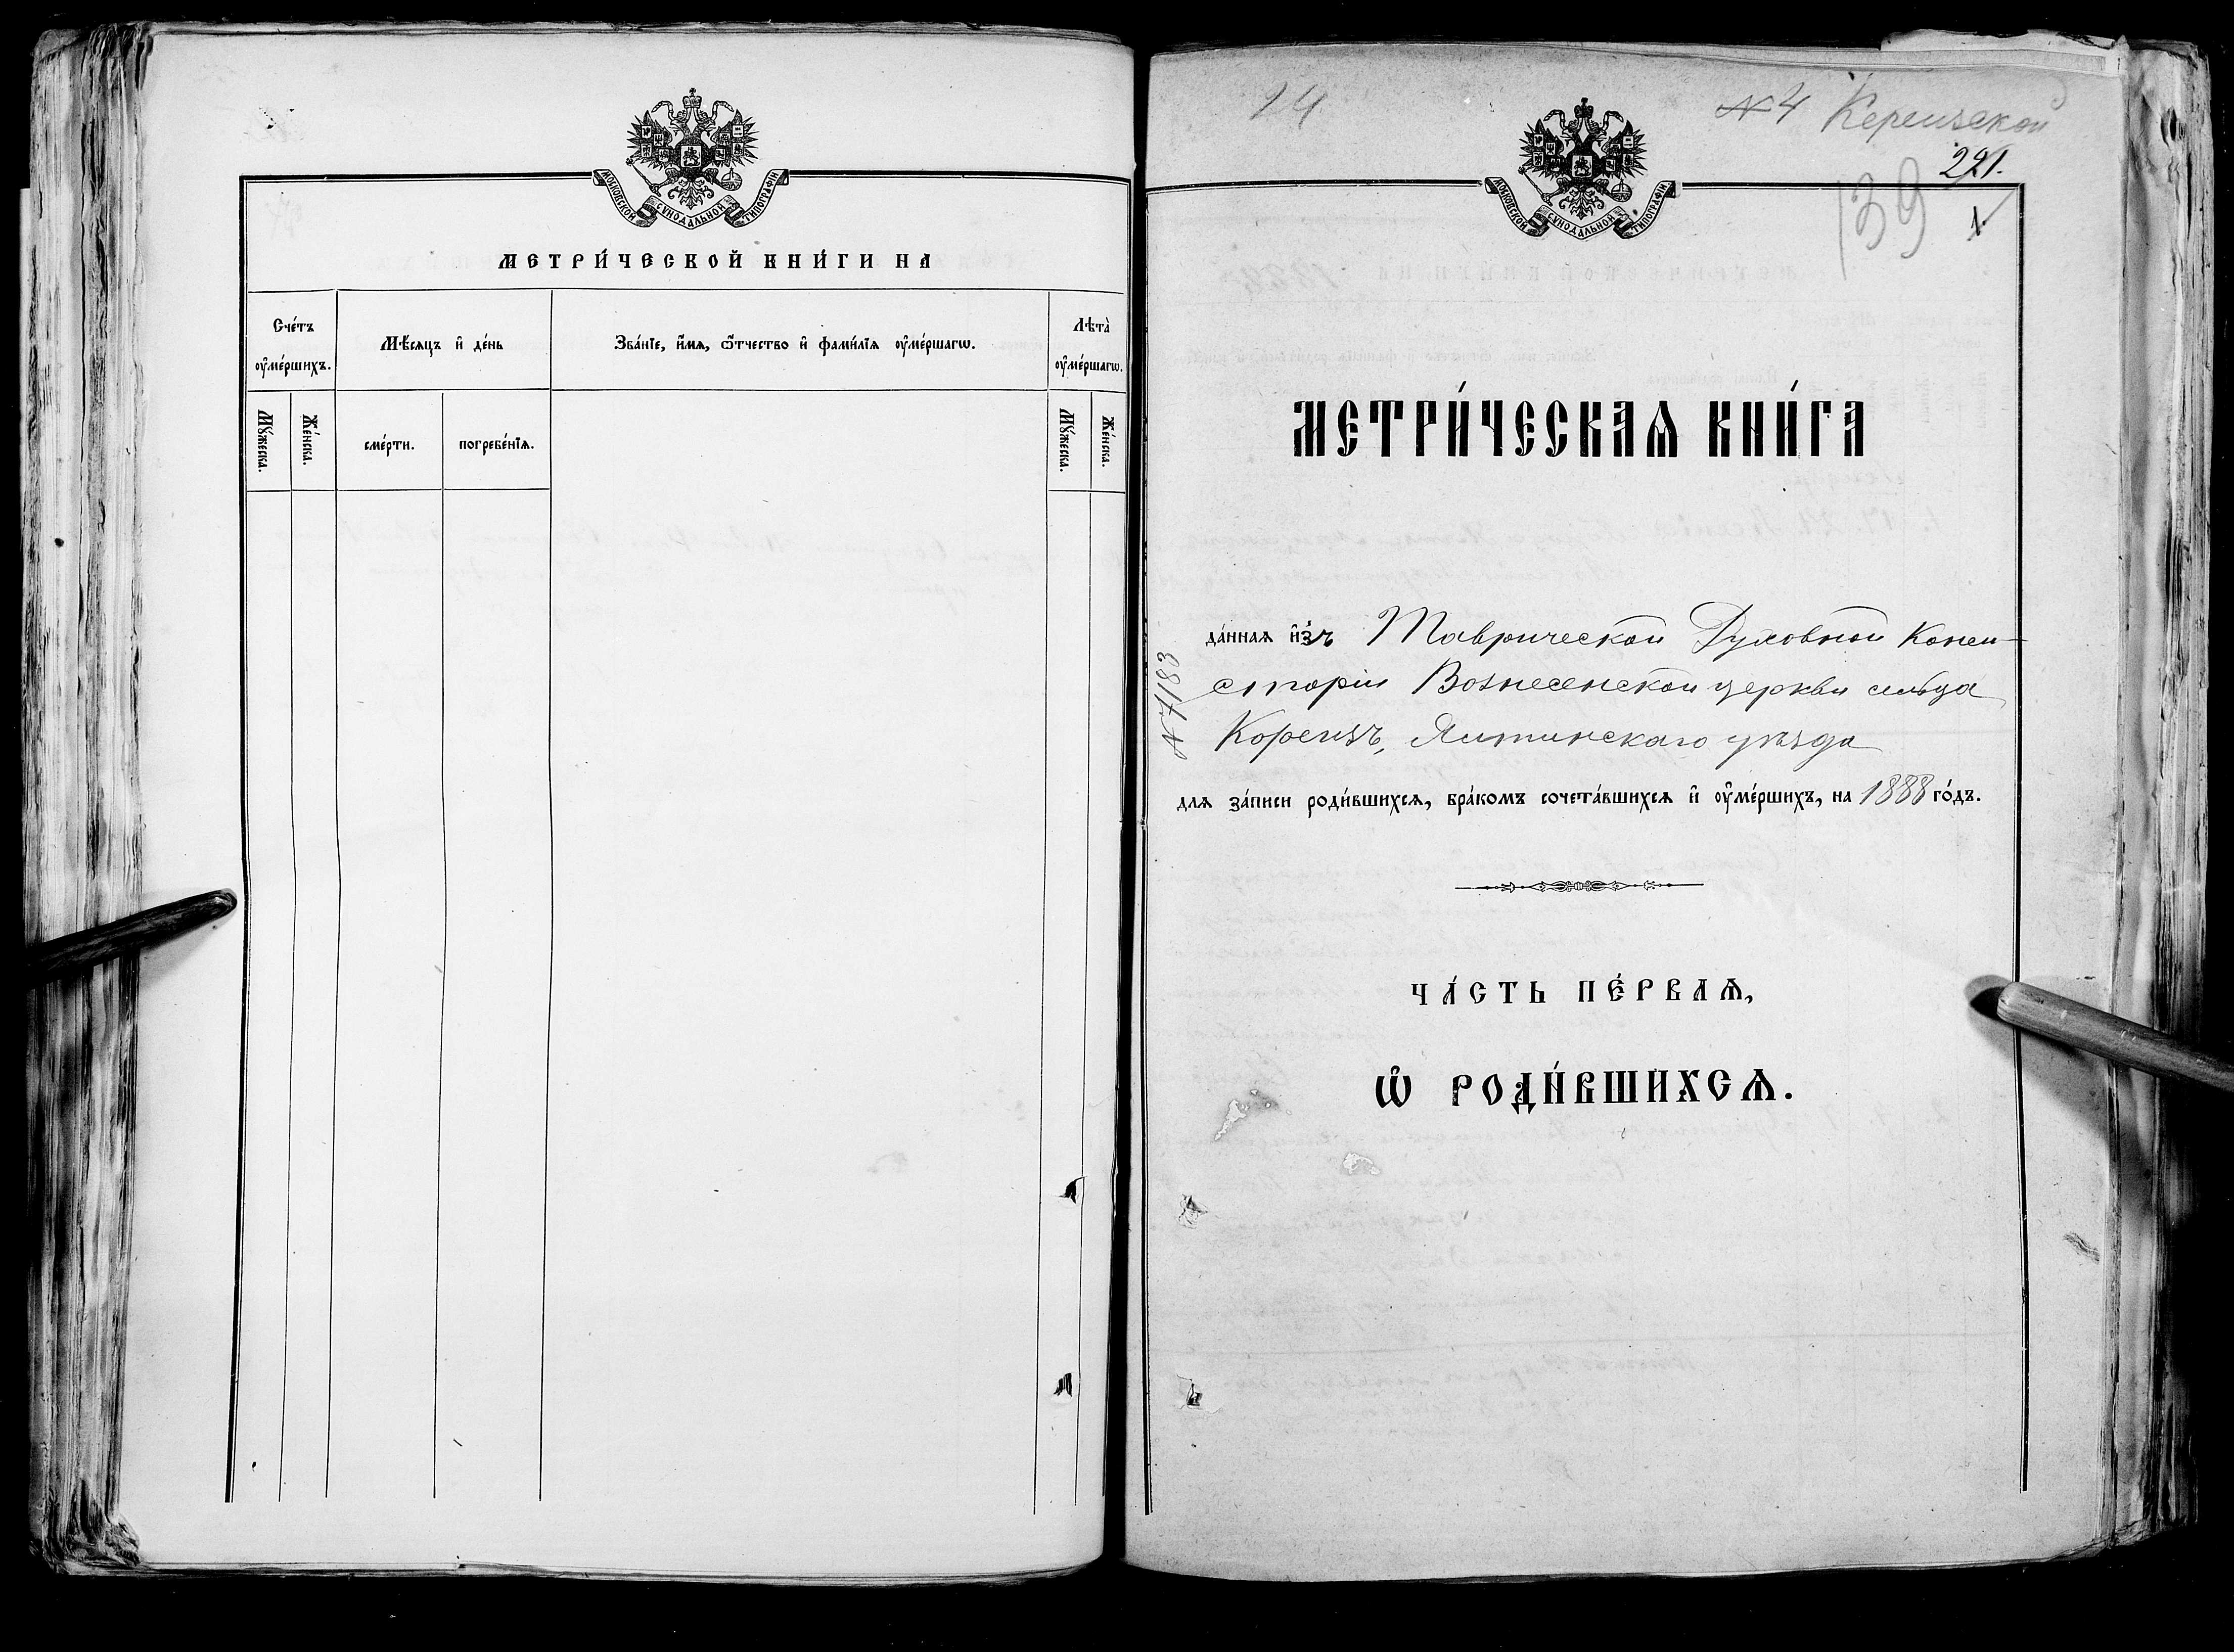 МОСКОВСКОЙ СѴНОДАЛЬНОЙ ТИПОГРАФІИ
МЕТРИ́ЧЕСКОЙ КНИ́ГИ НА
Сче́тъ ᲂу҆ме́ршихъ.
Мѣ́сяцъ и҆ де́нь
Зва́нїе, и҆́мѧ, ѻ҆́тчество и҆ фами́лїѧ ᲂу҆ме́ршагѡ.
Лѣта̀ ᲂу҆ме́ршагѡ.
Мꙋ́жеска.
Же́нска.
сме́рти.
погребе́нїѧ.
Мꙋ́жеска.
Же́нска.
14
№ 4 Кореизской
221.
139
1
МОСКОВСКОЙ СѴНОДАЛЬНОЙ ТИПОГРАФІИ
МЕТРИ́ЧЕСКАѦ КНИ́ГА
да́ннаѧ и҆́зъ Таврической Духовной Конси-
сторіи Вознесенской церкви сельца
Кореизъ, Ялтинскаго уѣзда
№ 7183
для за́писи роди́вшихсѧ, бра́комъ сочета́вшихсѧ и҆ ᲂу҆ме́ршихъ, на 1888 го́дъ.
ЧА́СТЬ ПЕ́РВАѦ,
Ѡ҆ РОДИ́ВШИХСѦ.